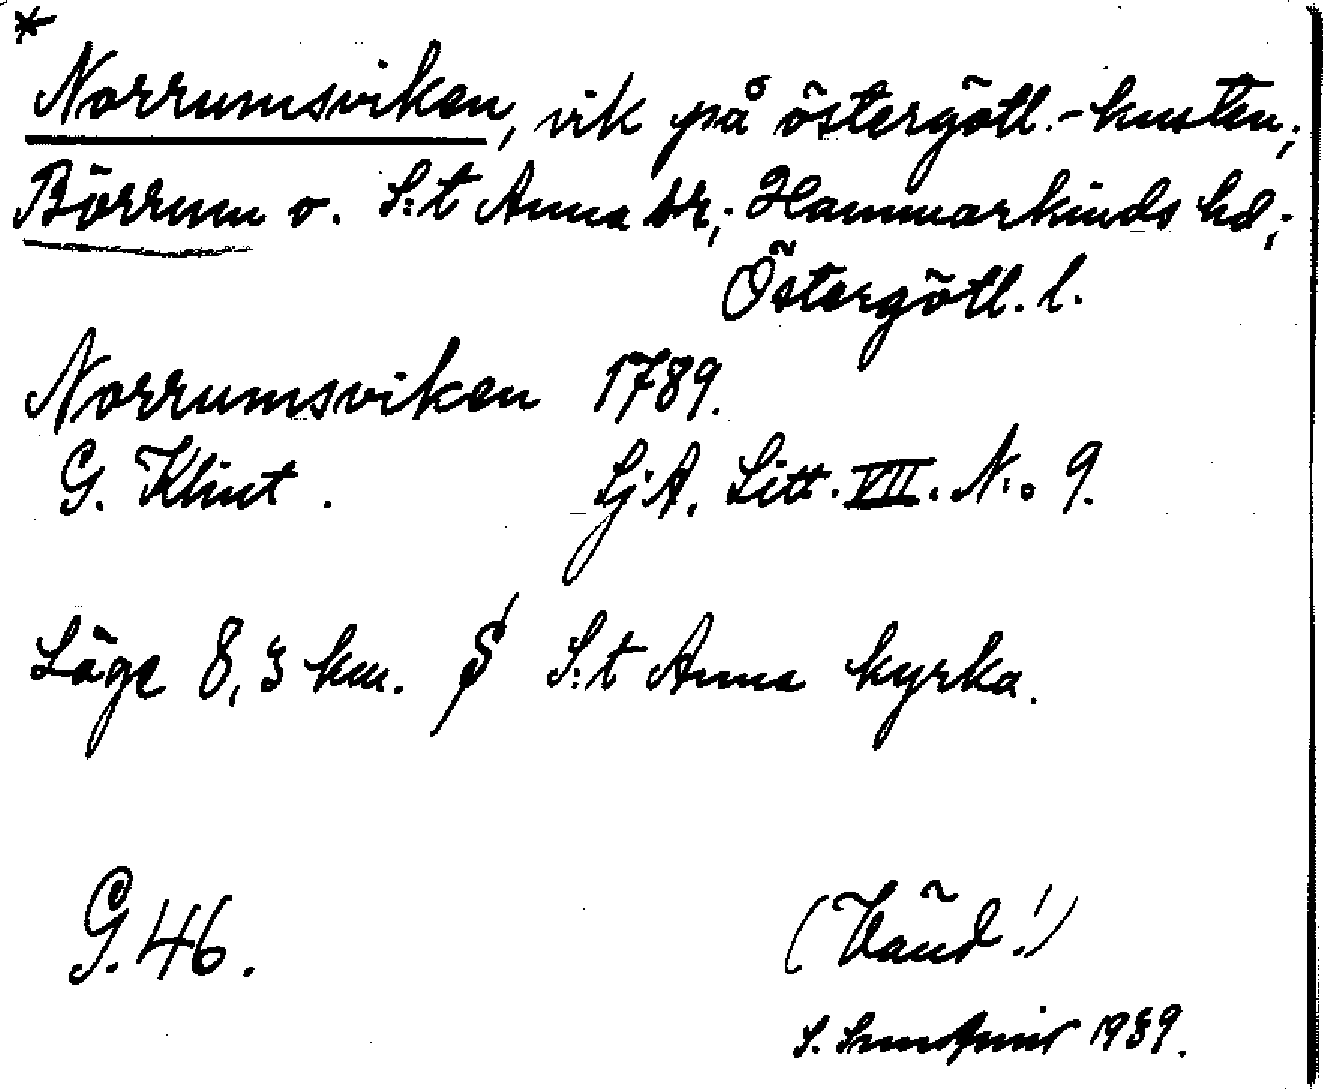 *
Norrumsviken, vik på östergötl.-kusten;
Börrum o. S:t Anna sr; Hammarkinds hd;
Östergötl. l.
Norrumsviken 1789.
G. Klint. SjA. Litt. VII. N:o 9.
Läge 8,3 km. S S:t Anna kyrka.
G. 46.
(Vänd!)
S. 1939.